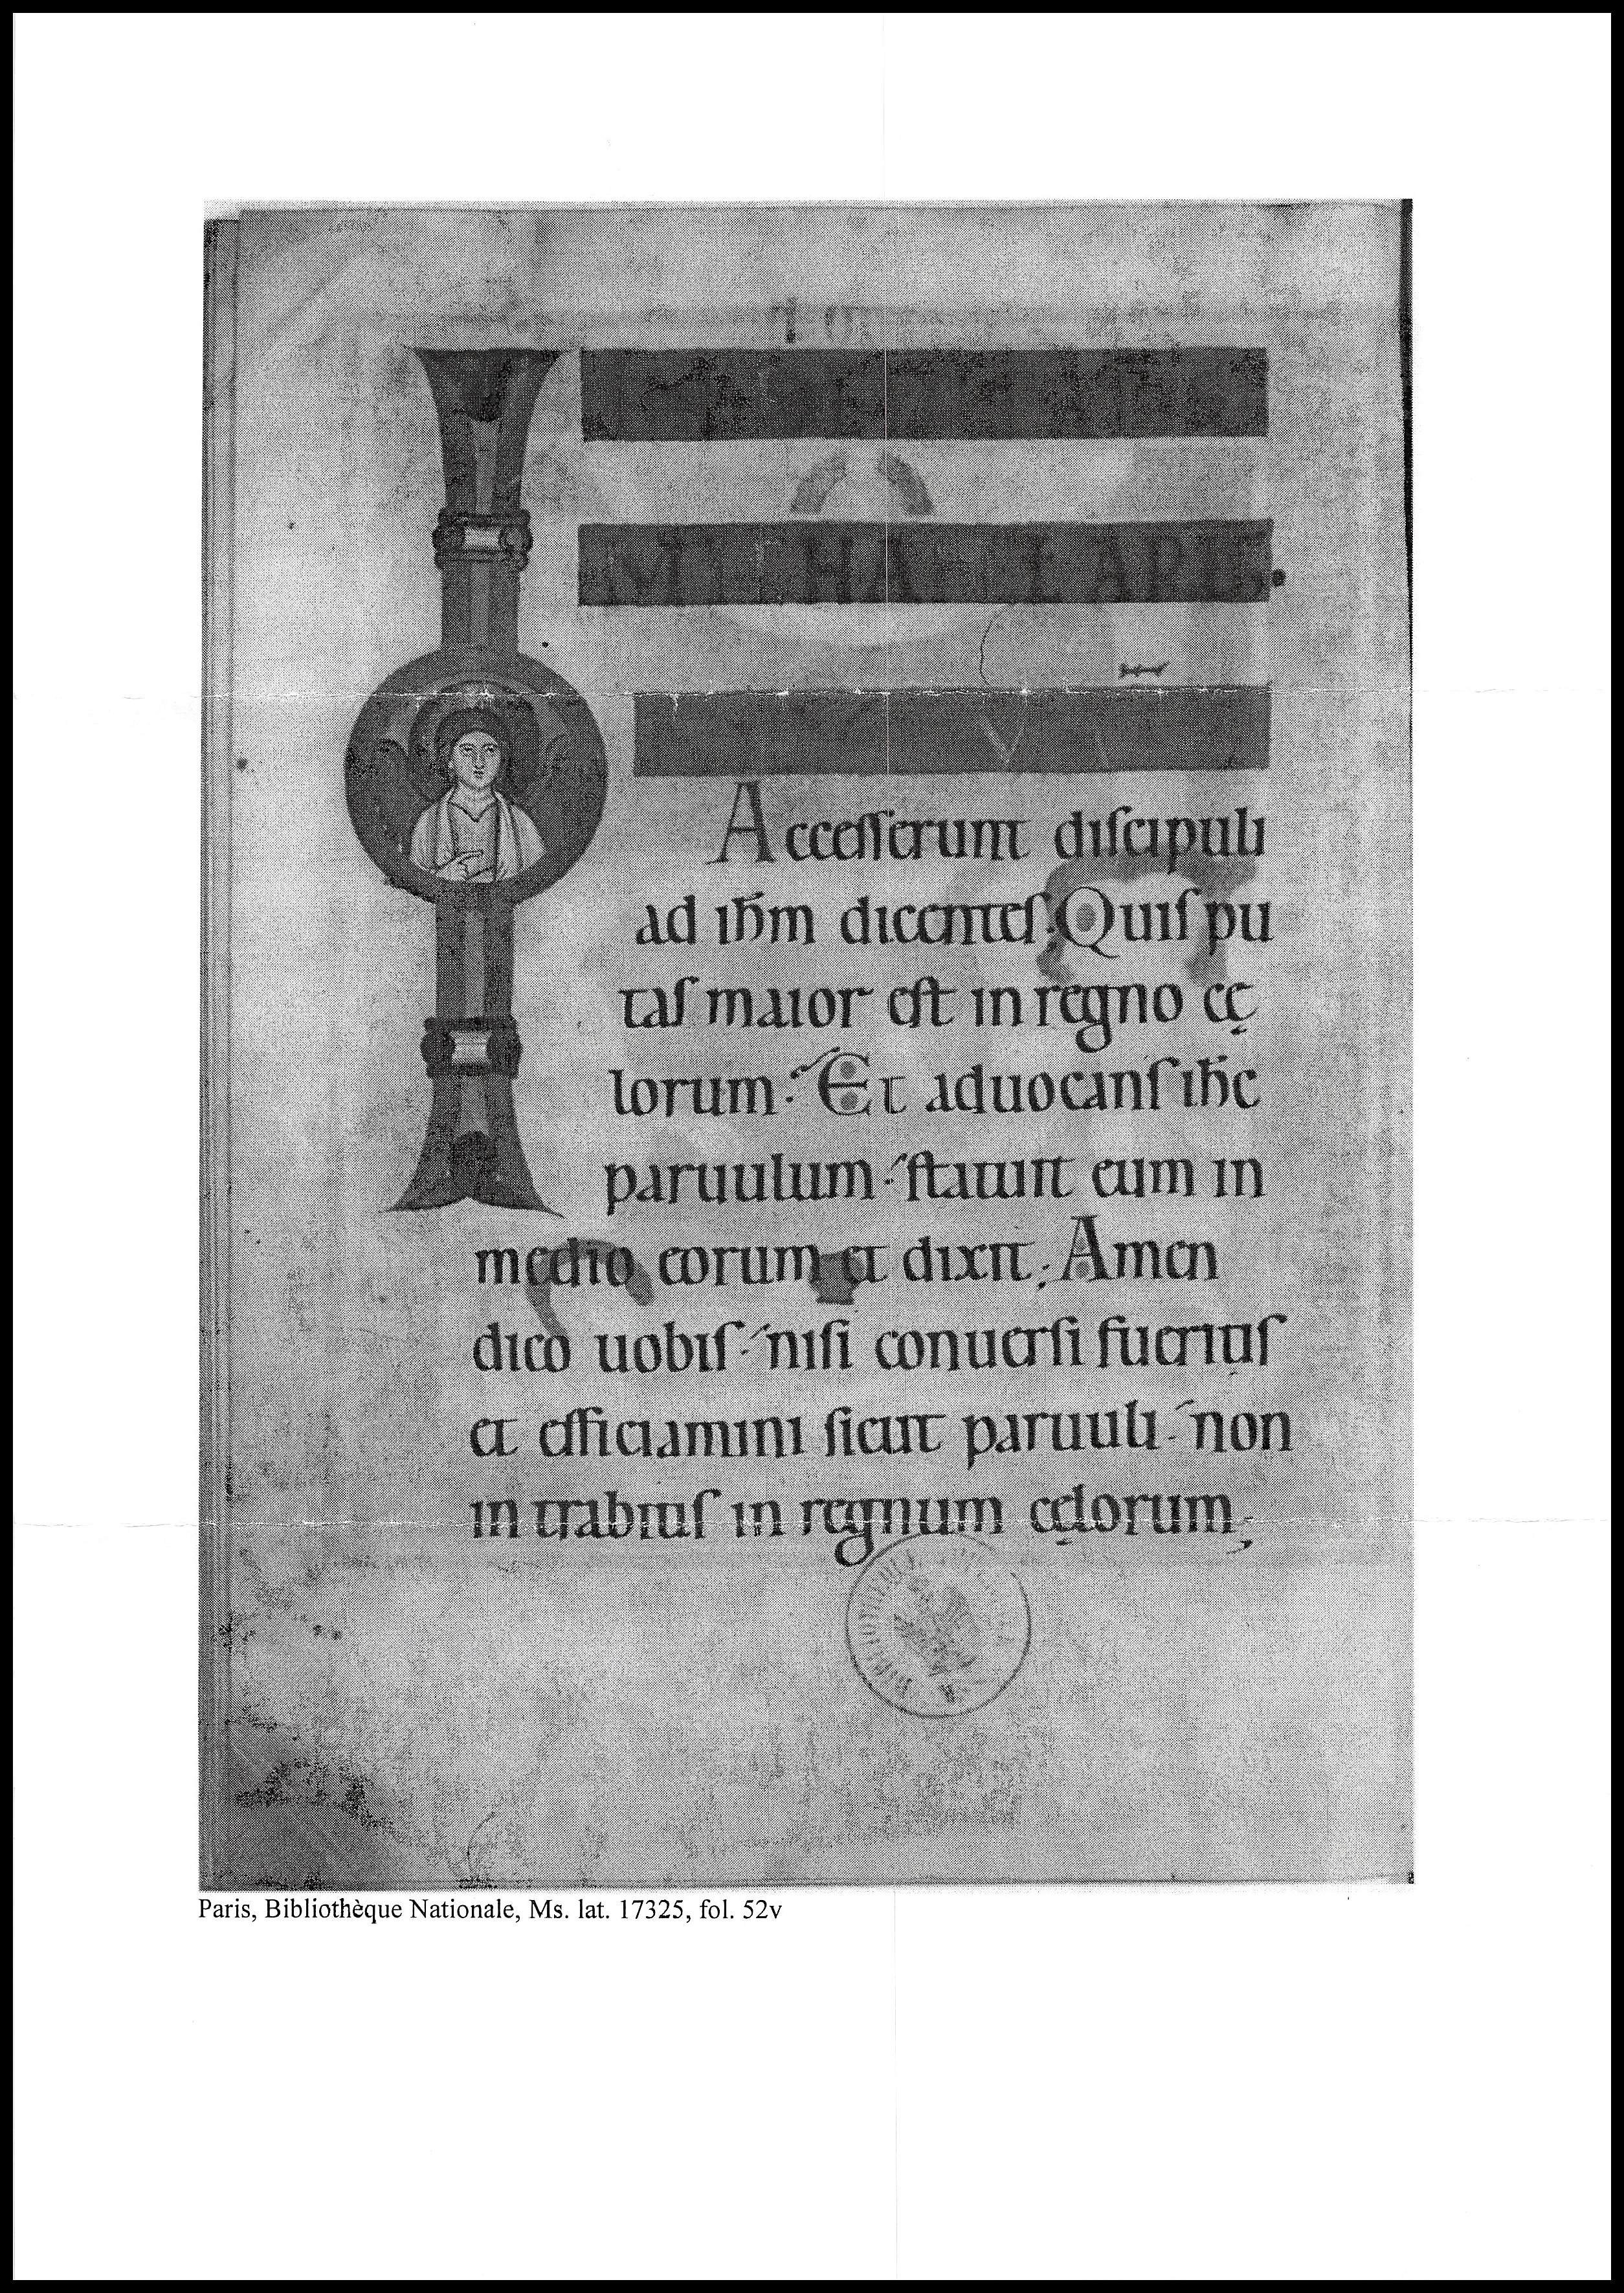 MICHAEL
Acceſſerunt diſcipuli
ad ihm̄ dicenteſ. Quiſ pu
taſ maior eſt in regno cę
lorum. Et aduocanſ ihc̄
paruulum. ſtatuit eum in
medio eorum et dixit; Amen
dico uobiſ. niſi conuerſi fueritiſ
et efficiamini ſicut paruuli. non
in trabitiſ in regnum cęlorum;
Paris, Bibliothèque Nationale, Ms. lat. 17325, fol. 52v